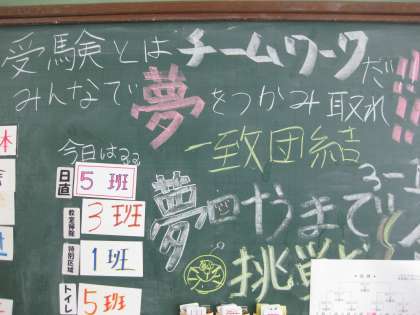 受験とはチームワークだ!!
みんなで夢をつかみ取れ!!
一致団結
今日は
日直 5班
教室掃除 3班
特別区域 1班
トイレ 5班
夢
やるまで
挑戦
3-1
休